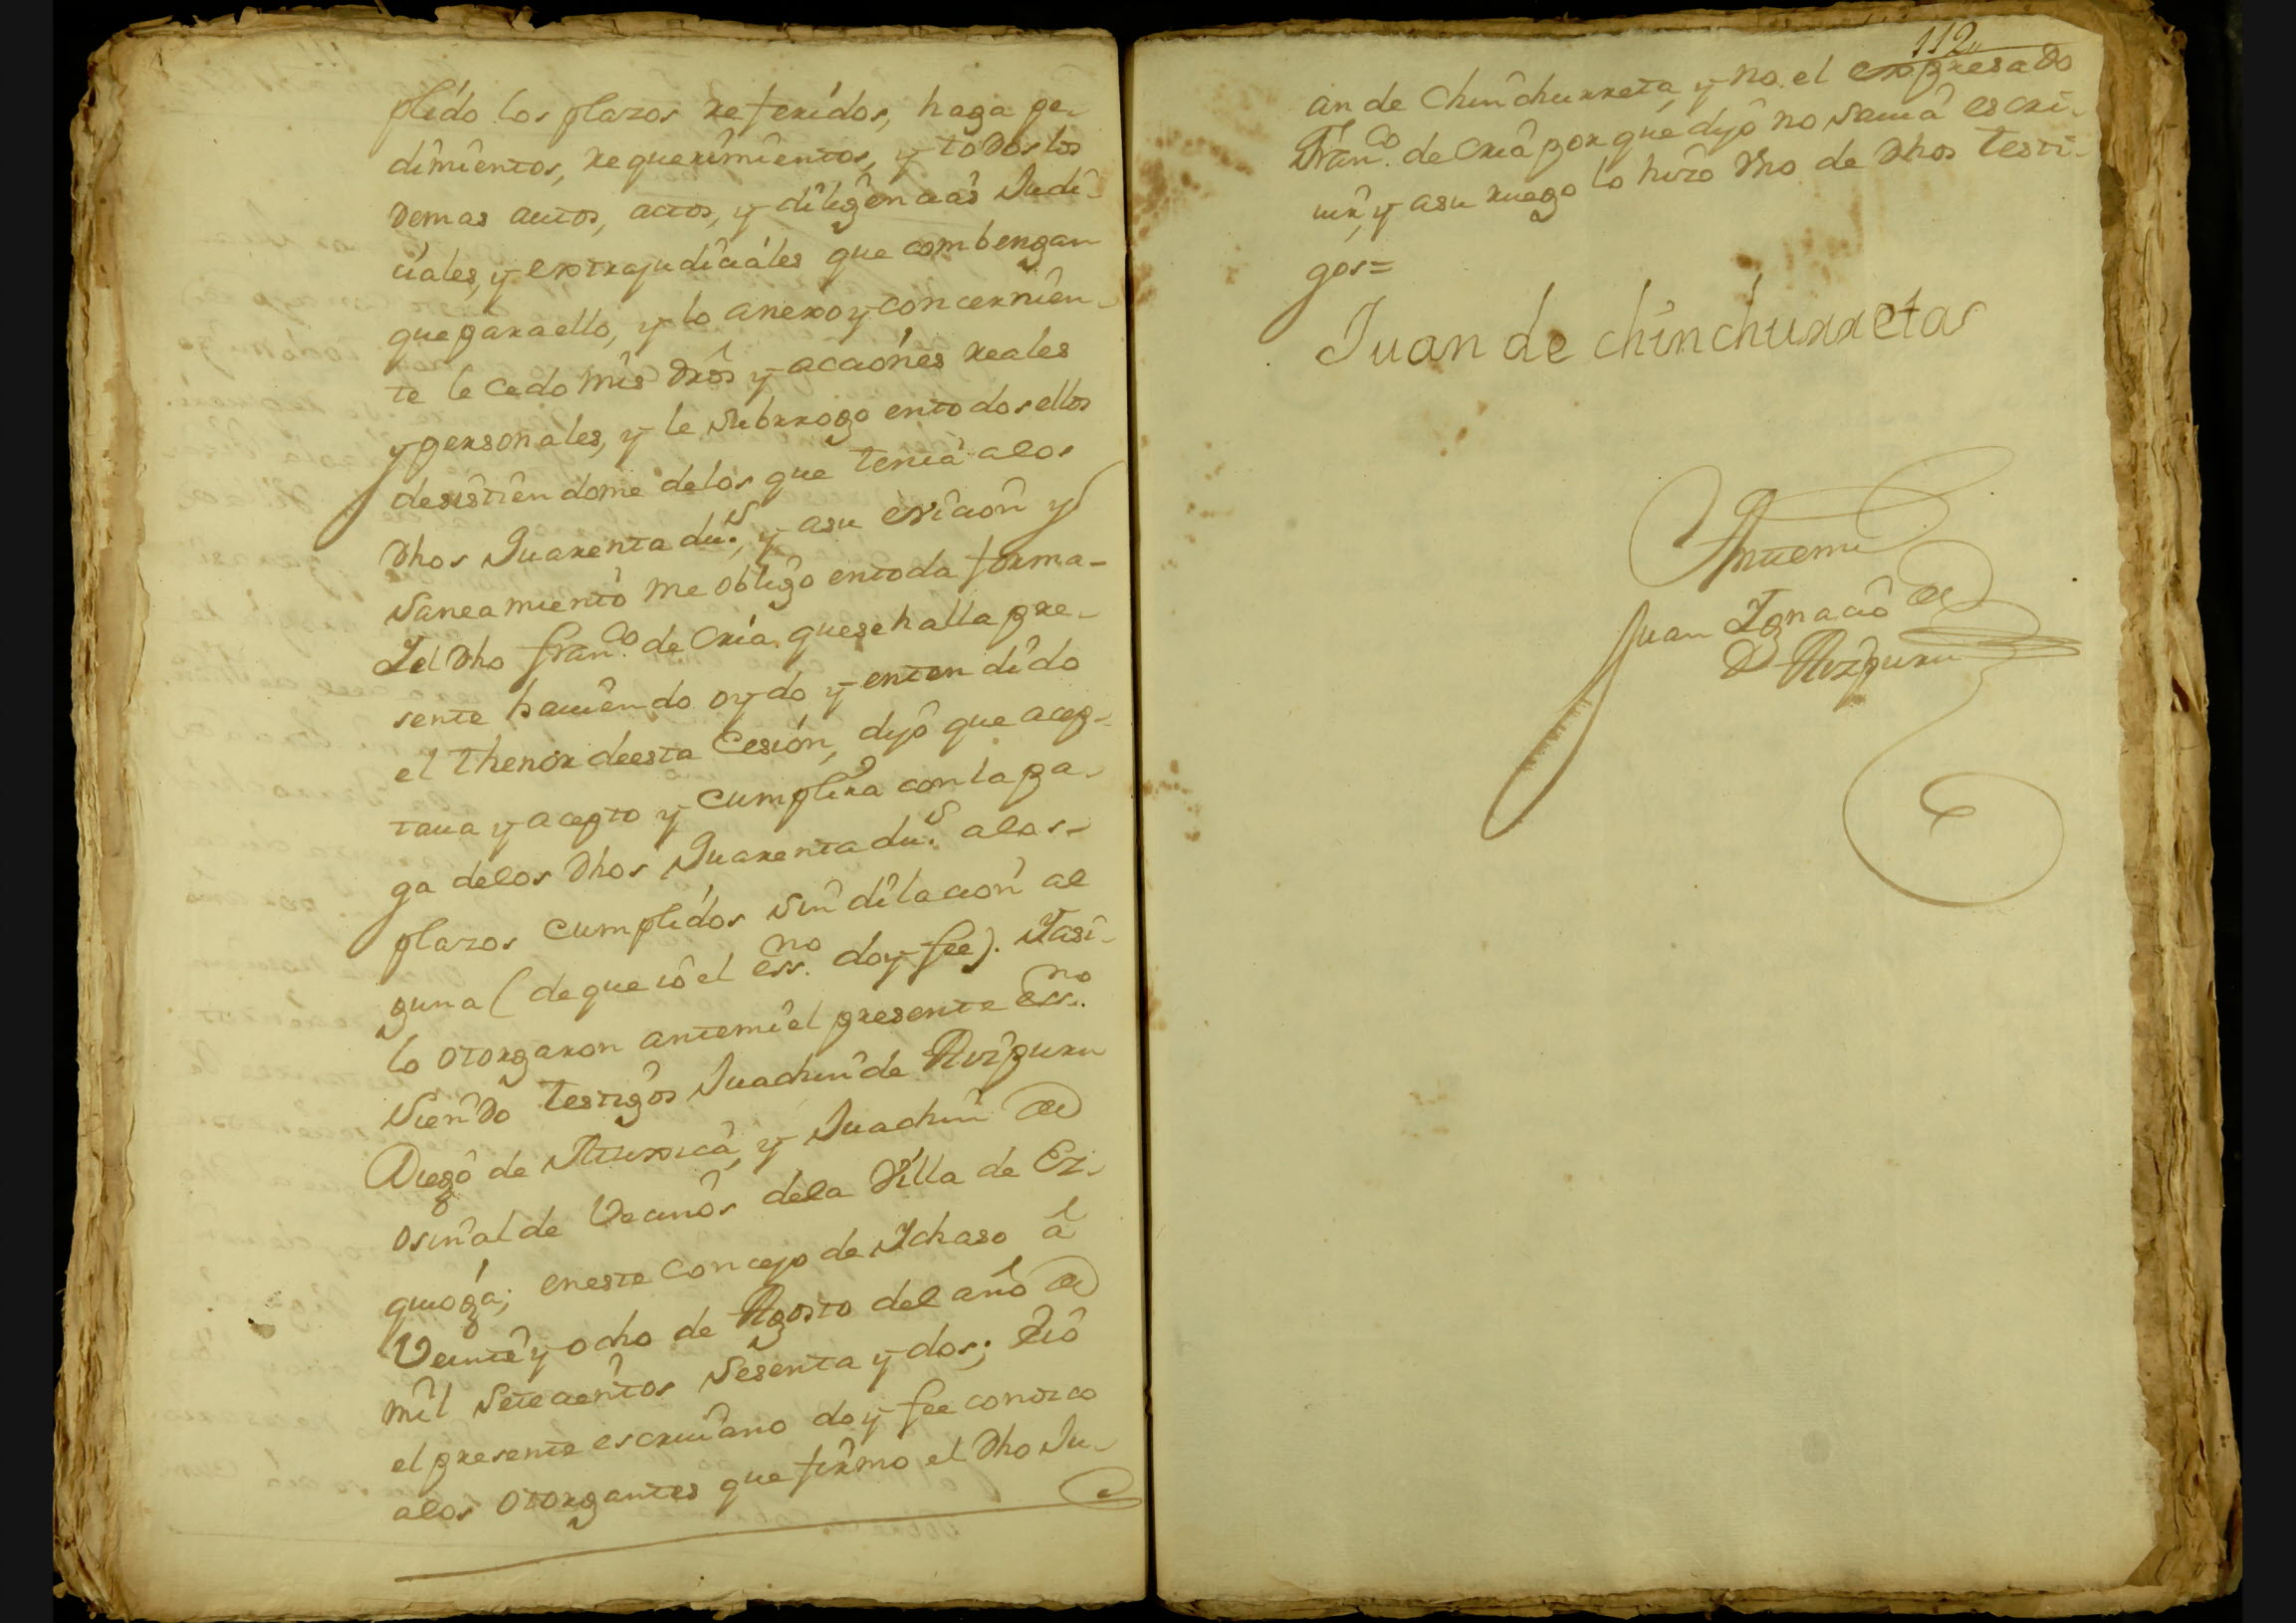 plido los plazos referidos, haga pe-
dimientos, requerimientos, y todos los
demas autos, actos, y diligencias Judi-
ciales, y extrajudiciales que combengan
que para ello, y lo anexo y concernien-
te le cedo mis dros y acciones reales
y personales, y le Subrrogo en todos ellos
desistiendome de los que tenia a los
dhos Quarenta dus., y a su eviccion y
Saneamiento me obligo en toda forma-
Y el dho Franco. de Oria que se halla pre-
sente haviendo oydo y entendido
el thenor de esta Cesion, dijo que acep-
tava y acepto y cumplira con la pa-
ga de los dhos Quarenta dus. a los-
plazos cumplidos sin dilacion al
guna (de que io el essno. doy fee). Y asi-
lo otorgaron ante mi el presente essno.
Siendo testigos Juachin de Aizpuru
Diego de Iturrica, y Juachin de
Osinalde Vecinos de la Villa de Ez-
quioga; en este concejo de Ichaso â
Veinte y ocho de Agosto del año de
mil Setecientos Sesenta y dos; E io
el presente escrivano doy fee conozco
a los otorgantes que firmo el dho Ju-
112
an de Chinchurreta, y no el expresado
Franco. de Oria porque dijo no Savia escri-
vir, y a su ruego lo hizo Vno de dhos testi-
gos=
Juan de chinchurretas
Ante mi
Juan Ignacio de
Aizpuru